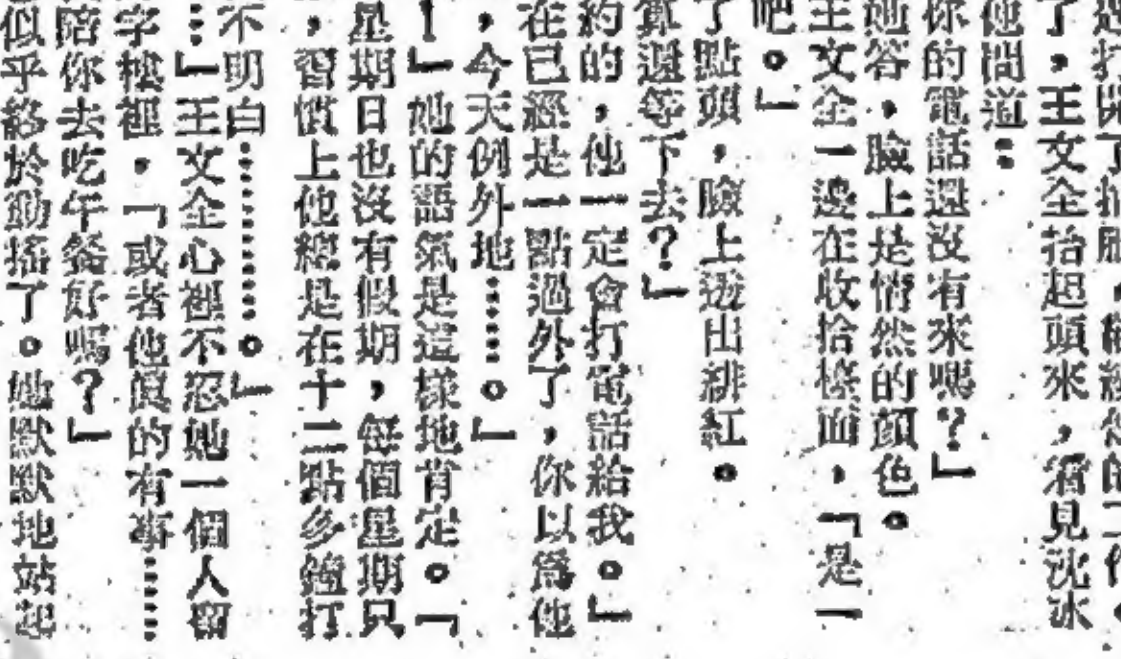 過打開了抽屜，
了，王文全抬起頭來，看見沈冰
他問道：
你的電話還沒有來嗎？」
她答，臉上是悄然的顏色。
王文全一邊在收拾檯面，「是一
吧。」
了點頭，臉上透出緋紅。
算還等下去？」
約的，他一定會打電話給我。」
在已經是一點過外了，你以爲他
，今天例外地……。」
！」她的語氣是這樣地肯定。「
星期日也沒有假期，每個星期只
，習慣上他總是在十二點多鐘打
不明白…………。」
…」王文全心裡不忍她一個人留
字樓裡，「或者他真的有事……
陪你去吃午餐好嗎？」
似乎終於動搖了。她默默地站起